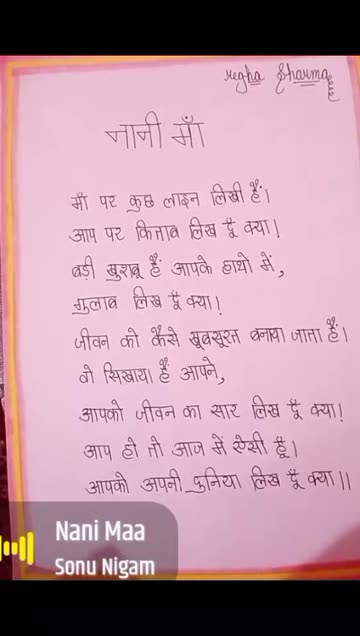 Megha Sharma
नानी माँ
माँ पर कुछ लाइन लिखी हैं।
आप पर किताब लिख दूँ क्या!
बड़ी खुशबू हैं आपके हाथो में,
गुलाब लिख दूँ क्या!
जीवन को कैसे खूबसूरत बनाया जाता हैं।
वो सिखाया हैं आपने,
आपको जीवन का सार लिख दूँ क्या!
आप हो तो आज में ऐसी हूँ।
आपको अपनी दुनिया लिख दूँ क्या।।
Nani Maa
Sonu Nigam